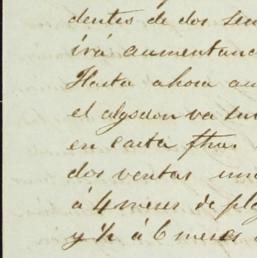 dentes de dos
irá aumentand
Hasta ahora au
el algodon va su
en carta fha
dos ventas un
á 4 meses de pla
y ½ á 6 meses